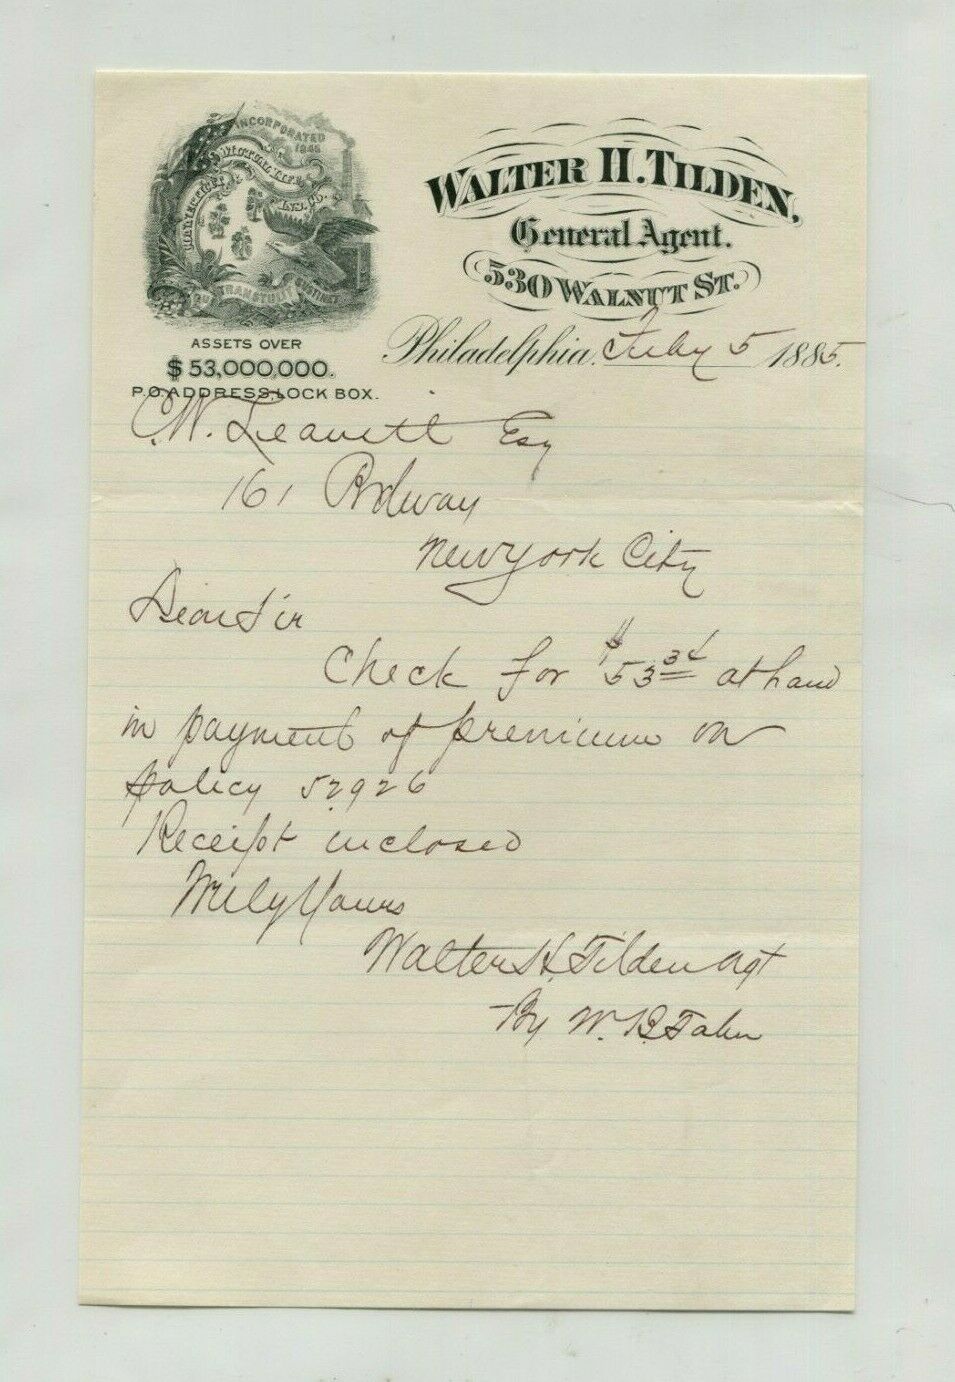 INCORPORATED
1846
QUI TRANSTULIT SUSTINET
ASSETS OVER
$53,000,000.
P.O. ADDRESS, LOCK BOX.
WALTER H. TILDEN,
General Agent.
530 WALNUT ST.
Philadelphia, July 5 1885.
C.W. Leavitt Esq
161 Brdway
New York City
Dear Sir
Check for $53 34 at hand
in payment of premium on
policy 52926
Receipt inclosed
Truly Yours
Walter H. Tilden Agt
By W. B.